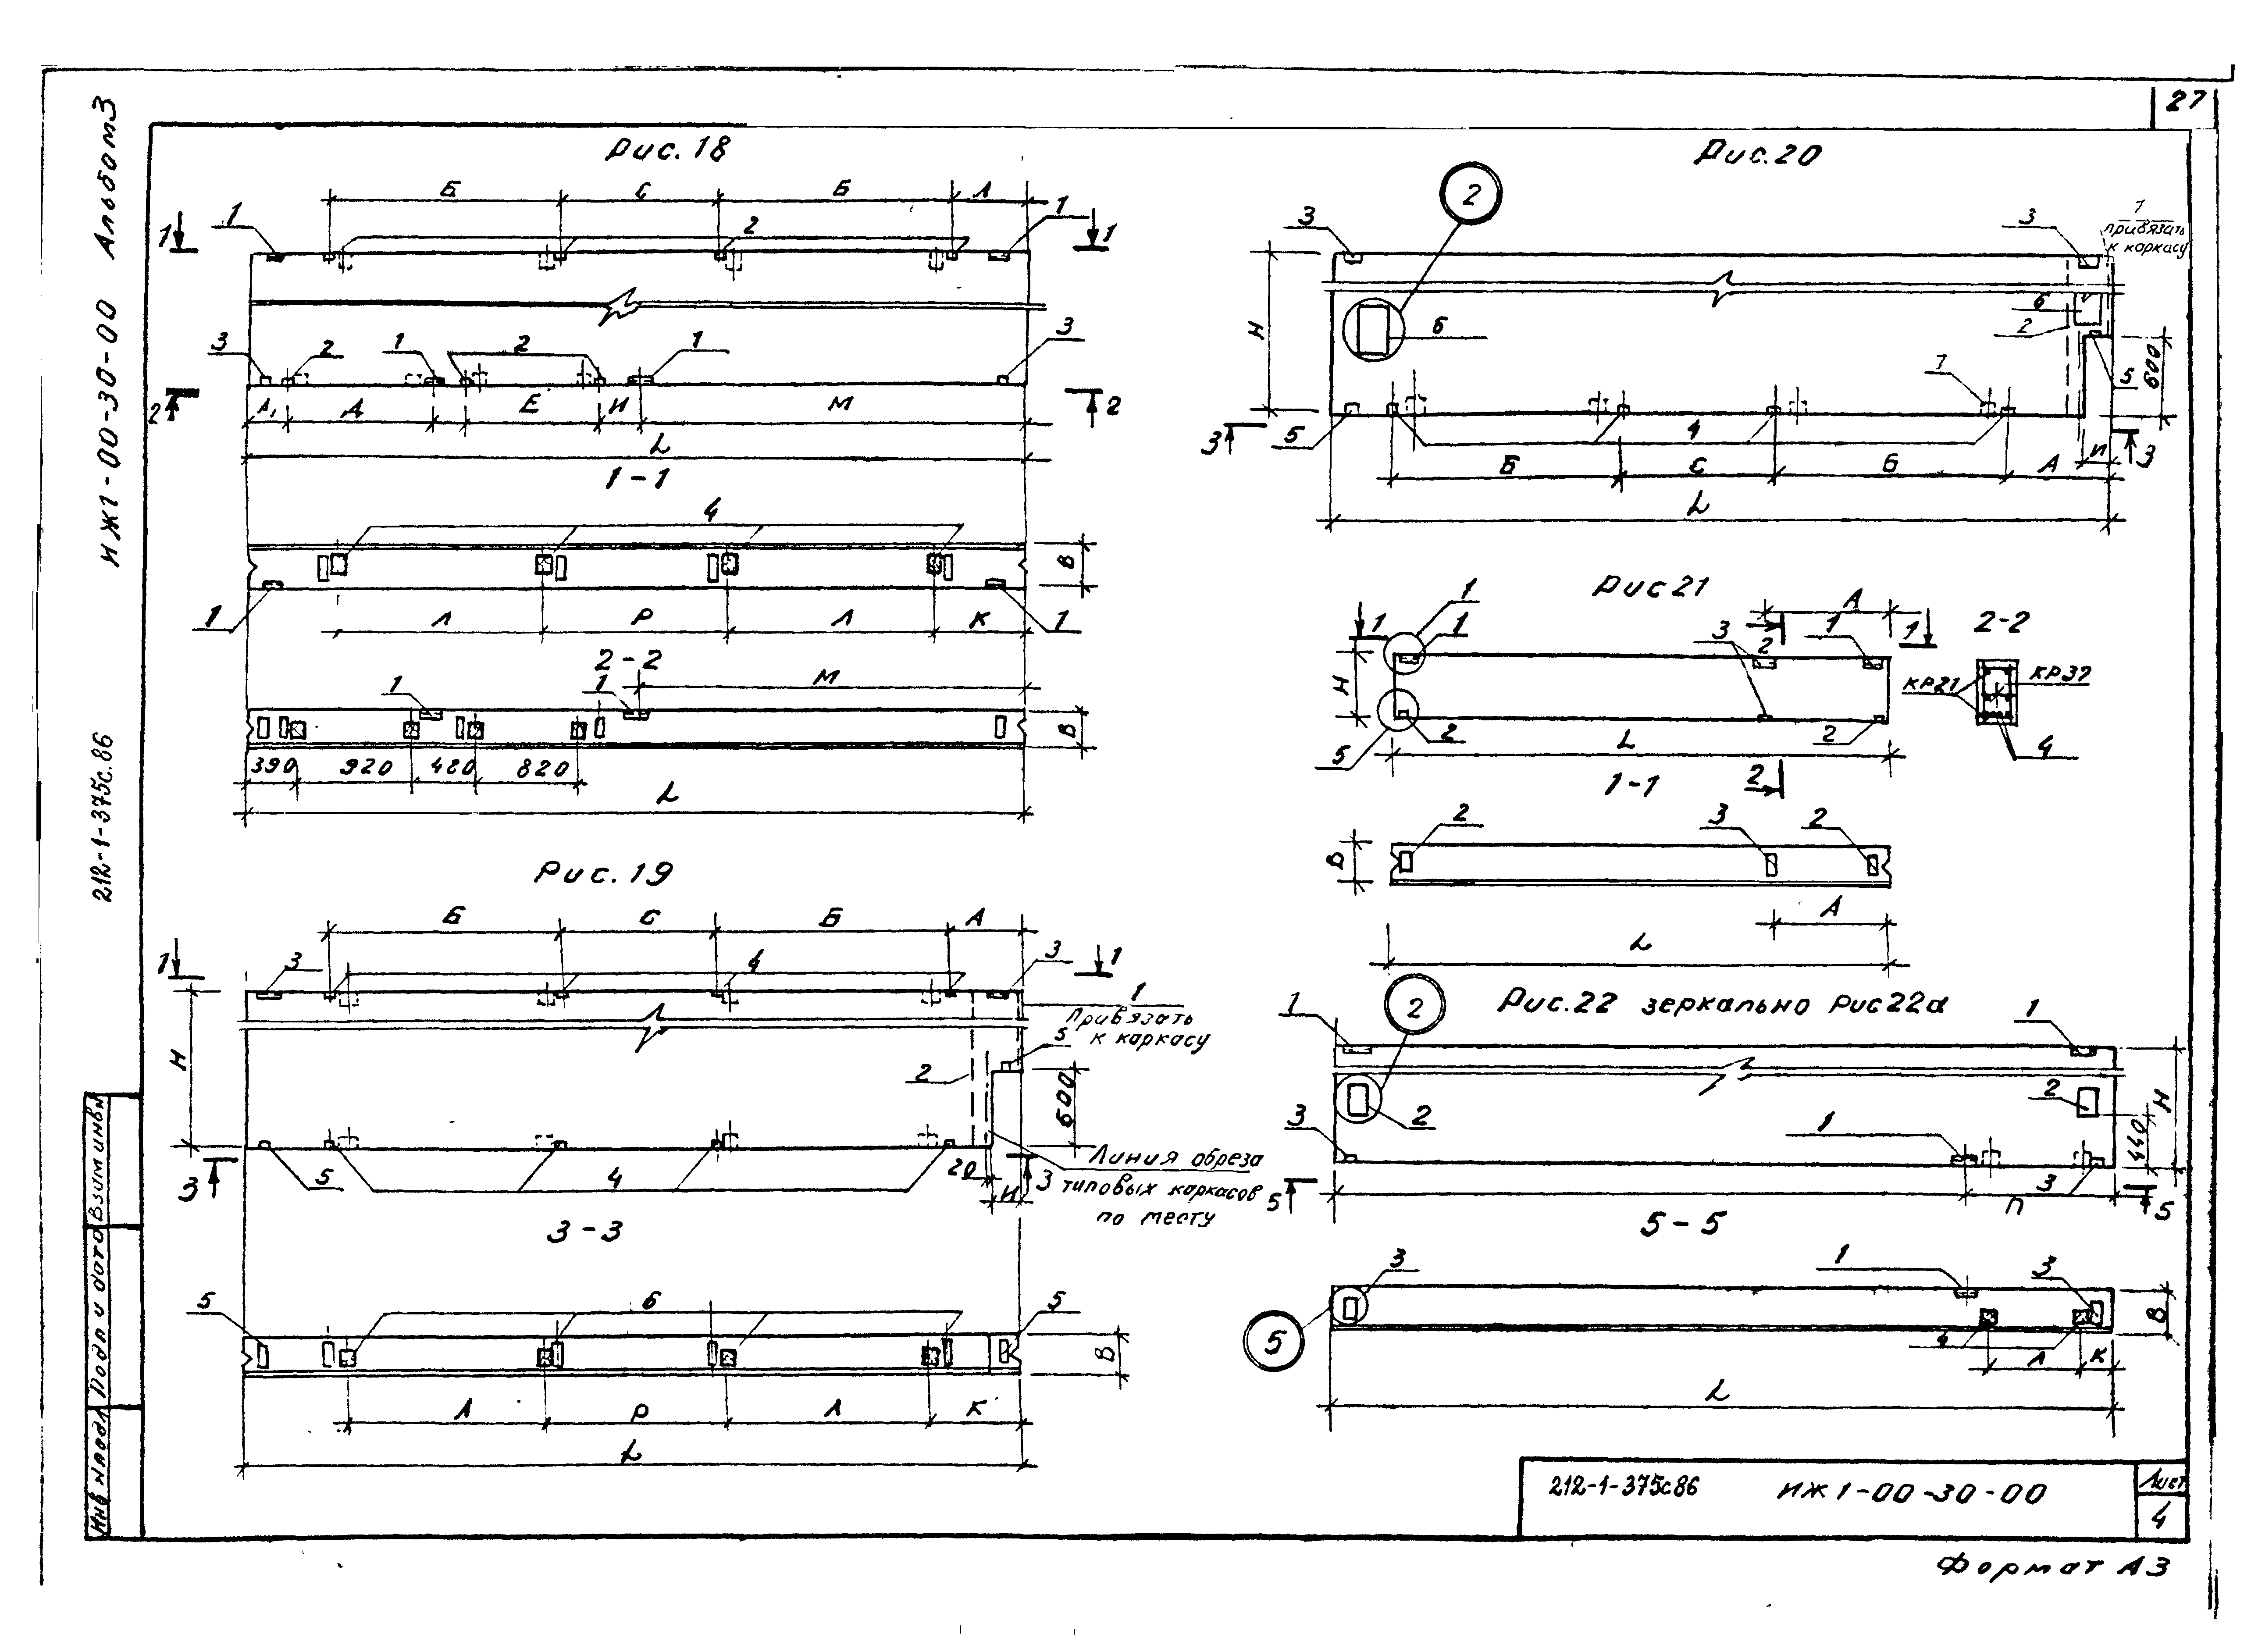 27
Альбом 3
ИЖ1-00-30-00
212-1-375с.86
Взам инв н
Подп и дата
Инв № подл
Рис. 18
Б С Б Л
1 1 2 1 1
3 2 1 2 1 3
2 А1 А Е И М 2
L
1-1
4
В
1 1
Л Р Л К
2-2
М
1 1
В
390 920 420 820
L
Рис. 19
Б С Б А
1 3 4 3 1
1
Привязать
к каркасу
Н
5
2
600
3 5 4 20 И 3
Линия обреза
типовых каркасов
по месту
3-3
5 6 5
В
Л Р Л К
L
Рис. 20
2
3 3
1
привязать
к каркасу
Н
6 6
2
5
600
1
3 5 4 3
Б С Б А И
L
Рис 21
А
1 1 1
3 2 1 1
Н
5 2 2
L
2
2-2
КР21 КР37
4
1-1
2 3 2
В
А
L
Рис. 22 зеркально Рис 22а
2
1 1
2 2
Н
440
3 1 3
5 П 5
5-5
3 1 3
5
4
В
Л К
L
212-1-375с86 ИЖ1-00-30-00
Лист
4
Формат А3